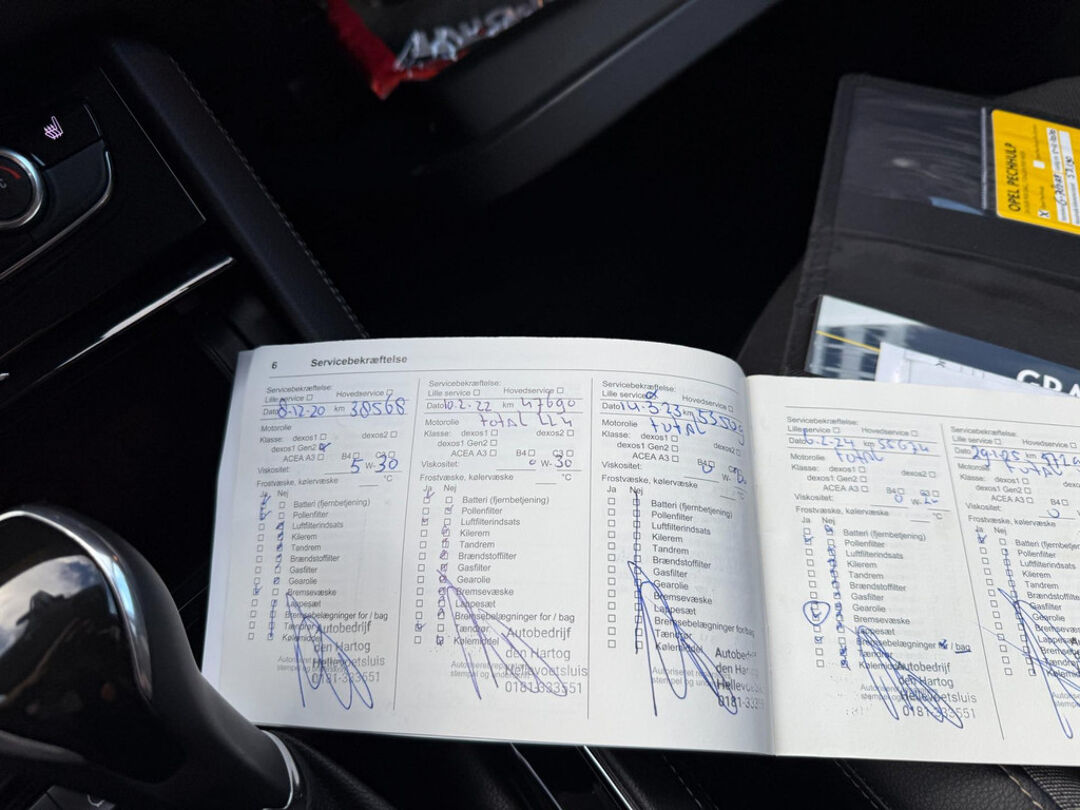 OPEL PECHHULP
X
GRA
6 Servicebekræftelse
Servicebekræftelse:
Lille service Hovedservice
Dato 8-12-20 km 38568
Motorolie
Klasse: dexos1 dexos2
dexos1 Gen2
ACEA A3 B4 C3
Viskositet: 5 W- 30
Frostvæske, kølervæske °C
Ja Nej
Batteri (fjernbetjening)
Pollenfilter
Luftfilterindsats
Kilerem
Tandrem
Brændstoffilter
Gasfilter
Gearolie
Bremsevæske
Lappesæt
Bremsebelægninger for / bag
Tændrør
Kølemiddel
Autobedrijf
den Hartog
Hellevoetsluis
0181-333551
Servicebekræftelse:
Lille service Hovedservice
Dato 10-2-22 km 47690
Motorolie total
Klasse: dexos1 dexos2
dexos1 Gen2
ACEA A3 B4 C3
Viskositet: 0 W- 30
Frostvæske, kølervæske °C
Ja Nej
Batteri (fjernbetjening)
Pollenfilter
Luftfilterindsats
Kilerem
Tandrem
Brændstoffilter
Gasfilter
Gearolie
Bremsevæske
Lappesæt
Bremsebelægninger for / bag
Tændrør
Kølemiddel
Autobedrijf
den Hartog
Hellevoetsluis
0181-333551
Servicebekræftelse:
Lille service Hovedservice
Dato 14-3-23 km
Motorolie total
Klasse: dexos1 dexos2
dexos1 Gen2
ACEA A3 B4
Viskositet: 0 W-
Frostvæske, kølervæske °C
Ja Nej
Batteri (fjernbetjening)
Pollenfilter
Luftfilterindsats
Kilerem
Tandrem
Brændstoffilter
Gasfilter
Gearolie
Bremsevæske
Lappesæt
Bremsebelægninger for / bag
Tændrør
Kølemiddel
den Har
0181-333
Servicebekræftelse:
Lille service Hovedservice
Dato 6-2-24 km
Motorolie total
Klasse: dexos1 dexos2
dexos1 Gen2
ACEA A3 B4 C3
Viskositet: 0 W-
Frostvæske, kølervæske °C
Ja Nej
Batteri (fjernbetjening)
Pollenfilter
Luftfilterindsats
Kilerem
Tandrem
Brændstoffilter
Gasfilter
Gearolie
Bremsevæske
Lappesæt
Bremsebelægninger / bag
Tændrør
Kølemiddel
Autobedrijf
den Hartog
Hellevoetsluis
0181-333551
Servicebekræftelse:
Lille service Hovedservice
Dato 29-1-25 km
Motorolie total
Klasse: dexos1
dexos1 Gen2
ACEA A3 B4
Viskositet: 0
Frostvæske, kølervæske
Ja Nej
Pollenfilter
Luftfilterindsats
Kilerem
Tandrem
Brændstoffilter
Gasfilter
Gearolie